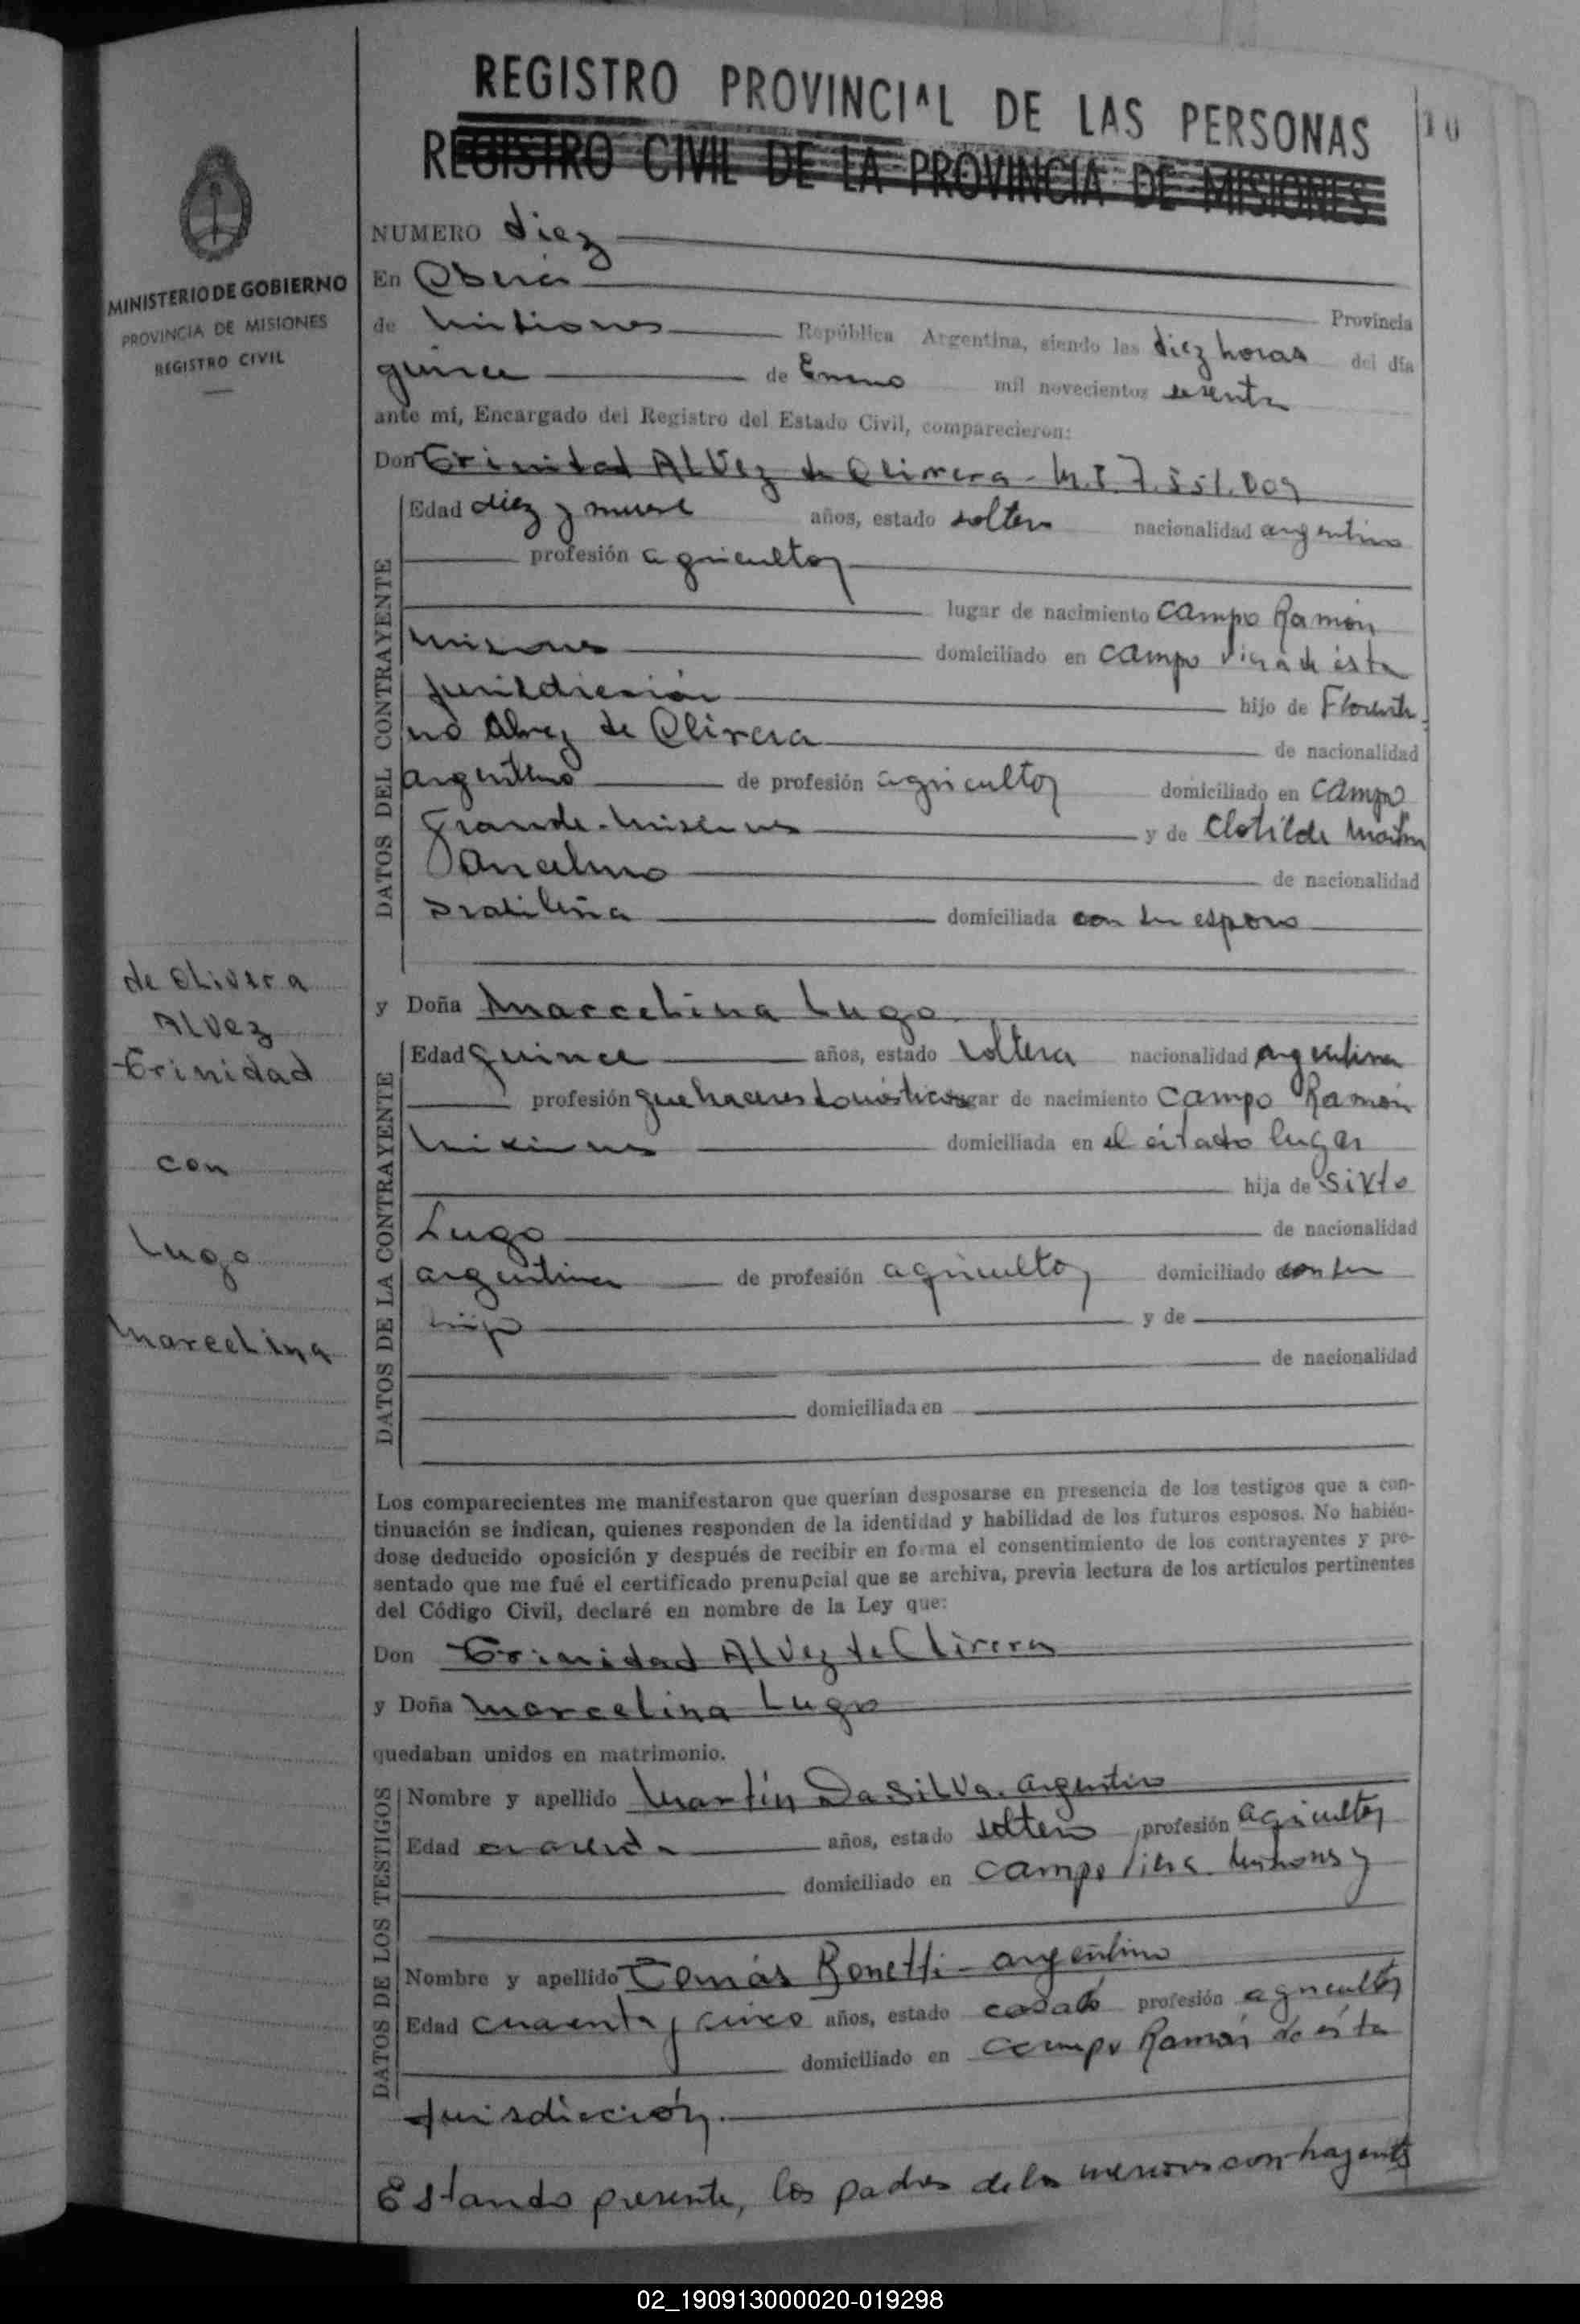 REGISTRO PROVINCIAL DE LAS PERSONAS
REGISTRO CIVIL DE LA PROVINCIA DE MISIONES
10
MINISTERIO DE GOBIERNO
PROVINCIA DE MISIONES
REGISTRO CIVIL
NUMERO diez
En Oberá
Provincia
de Misiones República Argentina, siendo las diez horas del día
quince de Enero mil novecientos sesenta
ante mí, Encargado del Registro del Estado Civil, comparecieron:
Don Trinidad Alvez de Olivera - M.I. 7.551.009
DATOS DEL CONTRAYENTE
Edad diez y nueve años, estado soltero nacionalidad argentino
profesión agricultor
lugar de nacimiento Campo Ramón
Misiones domiciliado en Campo Viera de ésta
jurisdicción hijo de Florenti
no Alvez de Olivera de nacionalidad
argentino de profesión agricultor domiciliado en Campo
Grande - Misiones y de Clotilde
Ancelmo de nacionalidad
brasileña domiciliada con su esposo
y Doña Marcelina Lugo
DATOS DE LA CONTRAYENTE
Edad quince años, estado soltera nacionalidad argentina
profesión quehaceres domésticos lugar de nacimiento Campo Ramón
Misiones domiciliada en el citado lugar
hija de Sixto
Lugo de nacionalidad
argentina de profesión agricultor domiciliado con su
hija y de
de nacionalidad
domiciliada en
de Olivera
Alvez
Trinidad
con
Lugo
Marcelina
Los comparecientes me manifestaron que querían desposarse en presencia de los testigos que a con-
tinuación se indican, quienes responden de la identidad y habilidad de los futuros esposos. No habién-
dose deducido oposición y después de recibir en forma el consentimiento de los contrayentes y pre-
sentado que me fué el certificado prenupcial que se archiva, previa lectura de los artículos pertinentes
del Código Civil, declaré en nombre de la Ley que:
Don Trinidad Alvez de Olivera
y Doña Marcelina Lugo
quedaban unidos en matrimonio.
DATOS DE LOS TESTIGOS
Nombre y apellido Martín Da Silva. argentino
Edad años, estado soltero profesión agricultor
domiciliado en Campo Viera Misiones y
Nombre y apellido Tomás Bonetti - argentino
Edad cuarenta y cinco años, estado casado profesión agricultor
domiciliado en Campo Ramón de ésta
jurisdicción.
Estando presente, los padres de los menores contrayentes
02_190913000020-019298